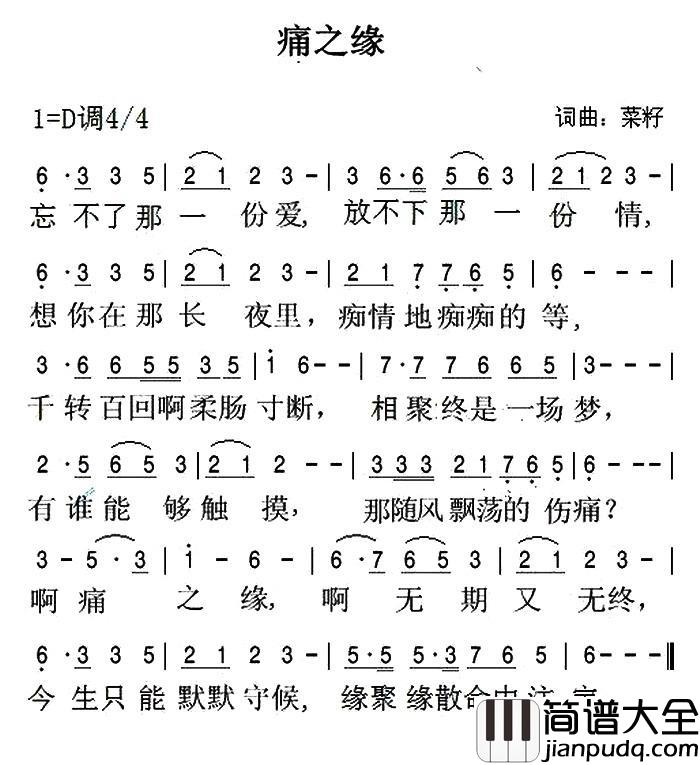 痛之缘
1=D调4/4
词曲：菜籽
6·3 3 5|2 1 2 3-|3 6·6 5 6 3|2 1 2 3-|
忘不了那一份爱，放不下那一份情，
6·3 3 5|2 1 2 3-|2 1 7 7 6 5|6---|
想你在那长夜里，痴情地痴痴的等，
3·6 6 5 5 3 5|1 6--|7·7 7 6 6 5|3---|
千转百回啊柔肠寸断，相聚终是一场梦，
2·5 6 5 3|2 1 2--|3 3 3 2 1 7 6 5|6---|
有谁能够触摸，那随风飘荡的伤痛？
3-5·3|1-6-|6·7 6 5 3|2 1 2 3-|
啊痛之缘，啊无期又无终，
6·3 3 5|2 1 2 3-|5·5 5·3 7 6 5|6---‖
今生只能默默守候，缘聚缘散命中
简谱大全
jianpudq.com